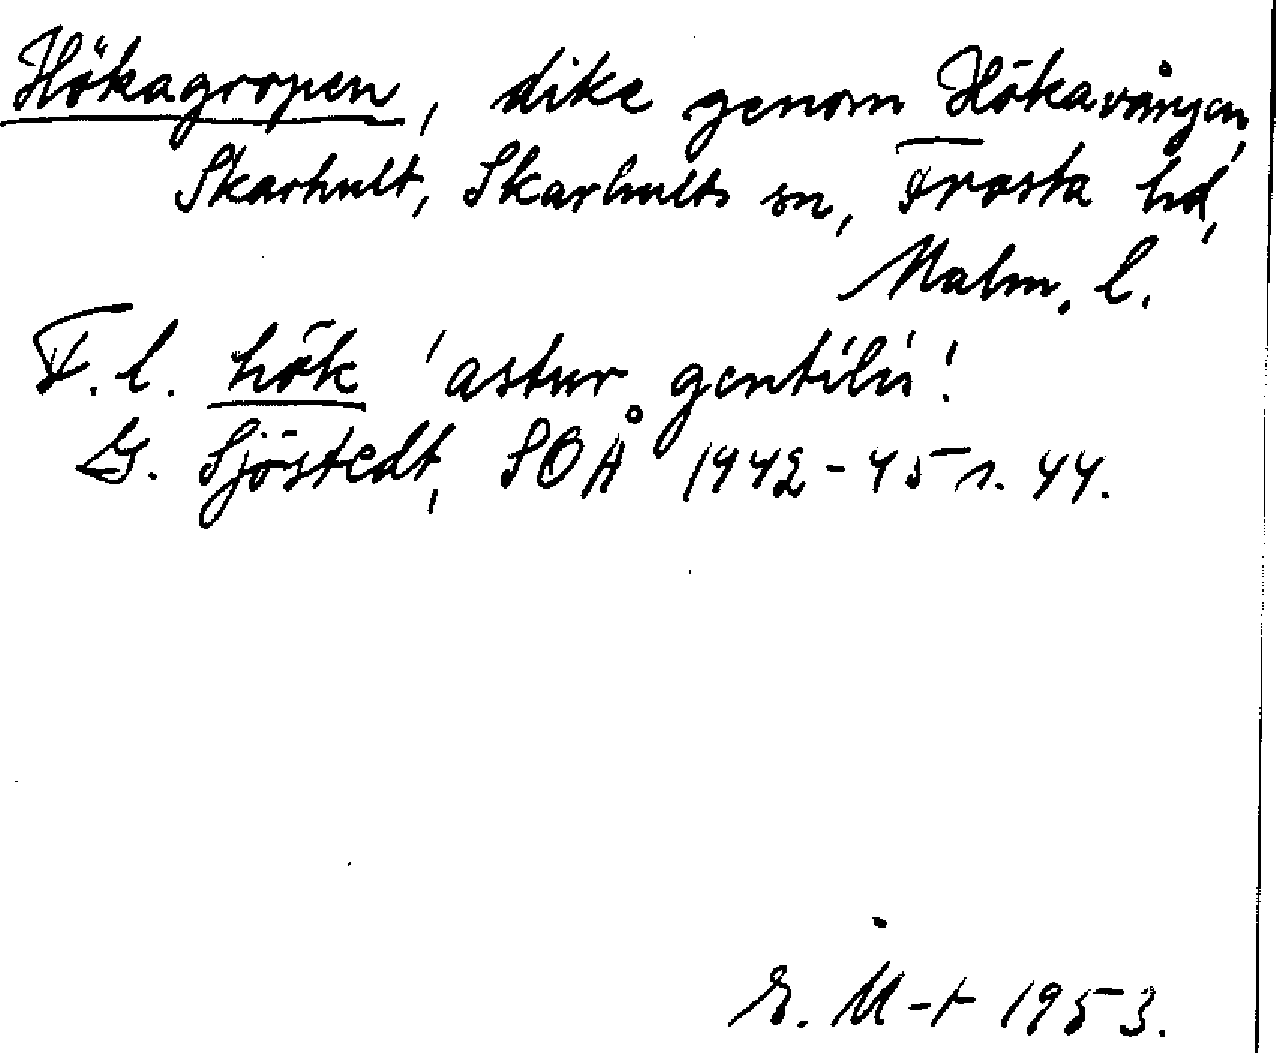 Hökagropen, dike genom Hökavången,
Skarhult, Skarhults sn, Frosta hd,
Malm. l.
F. l. hök 'astur gentilis'.
G. Sjöstedt, SOÅ 1942-45 s. 44.
E. M-t 1953.